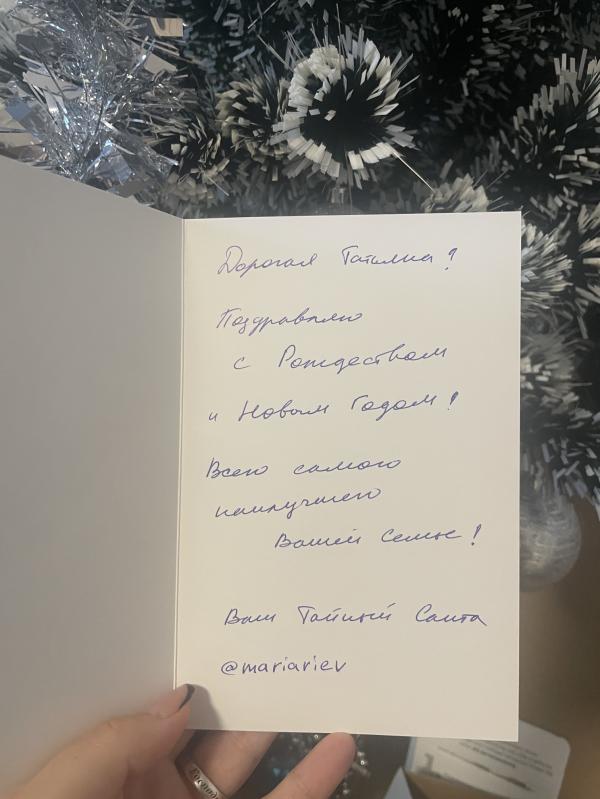 Дорогая Татьяна!
Поздравляю
с Рождеством
и Новым Годом!
Всего самого
наилучшего
Вашей Семье!
Ваш Тайный Санта
@mariariev